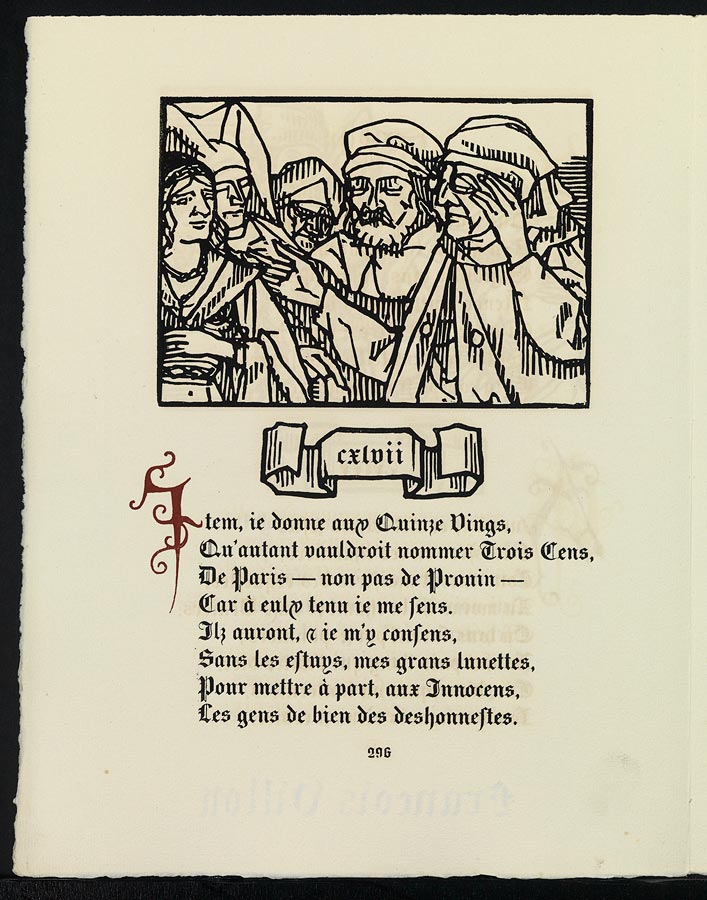 cxlvii
Item, ie donne aux Quinze Vings,
Qu'autant vauldroit nommer Trois Cens,
De Paris — non pas de Prouin —
Car à eulx tenu ie me sens.
Ilz auront, & ie m'y consens,
Sans les estuys, mes grans lunettes,
Pour mettre à part, aux Innocens,
Les gens de bien des deshonnestes.
296
François Villon